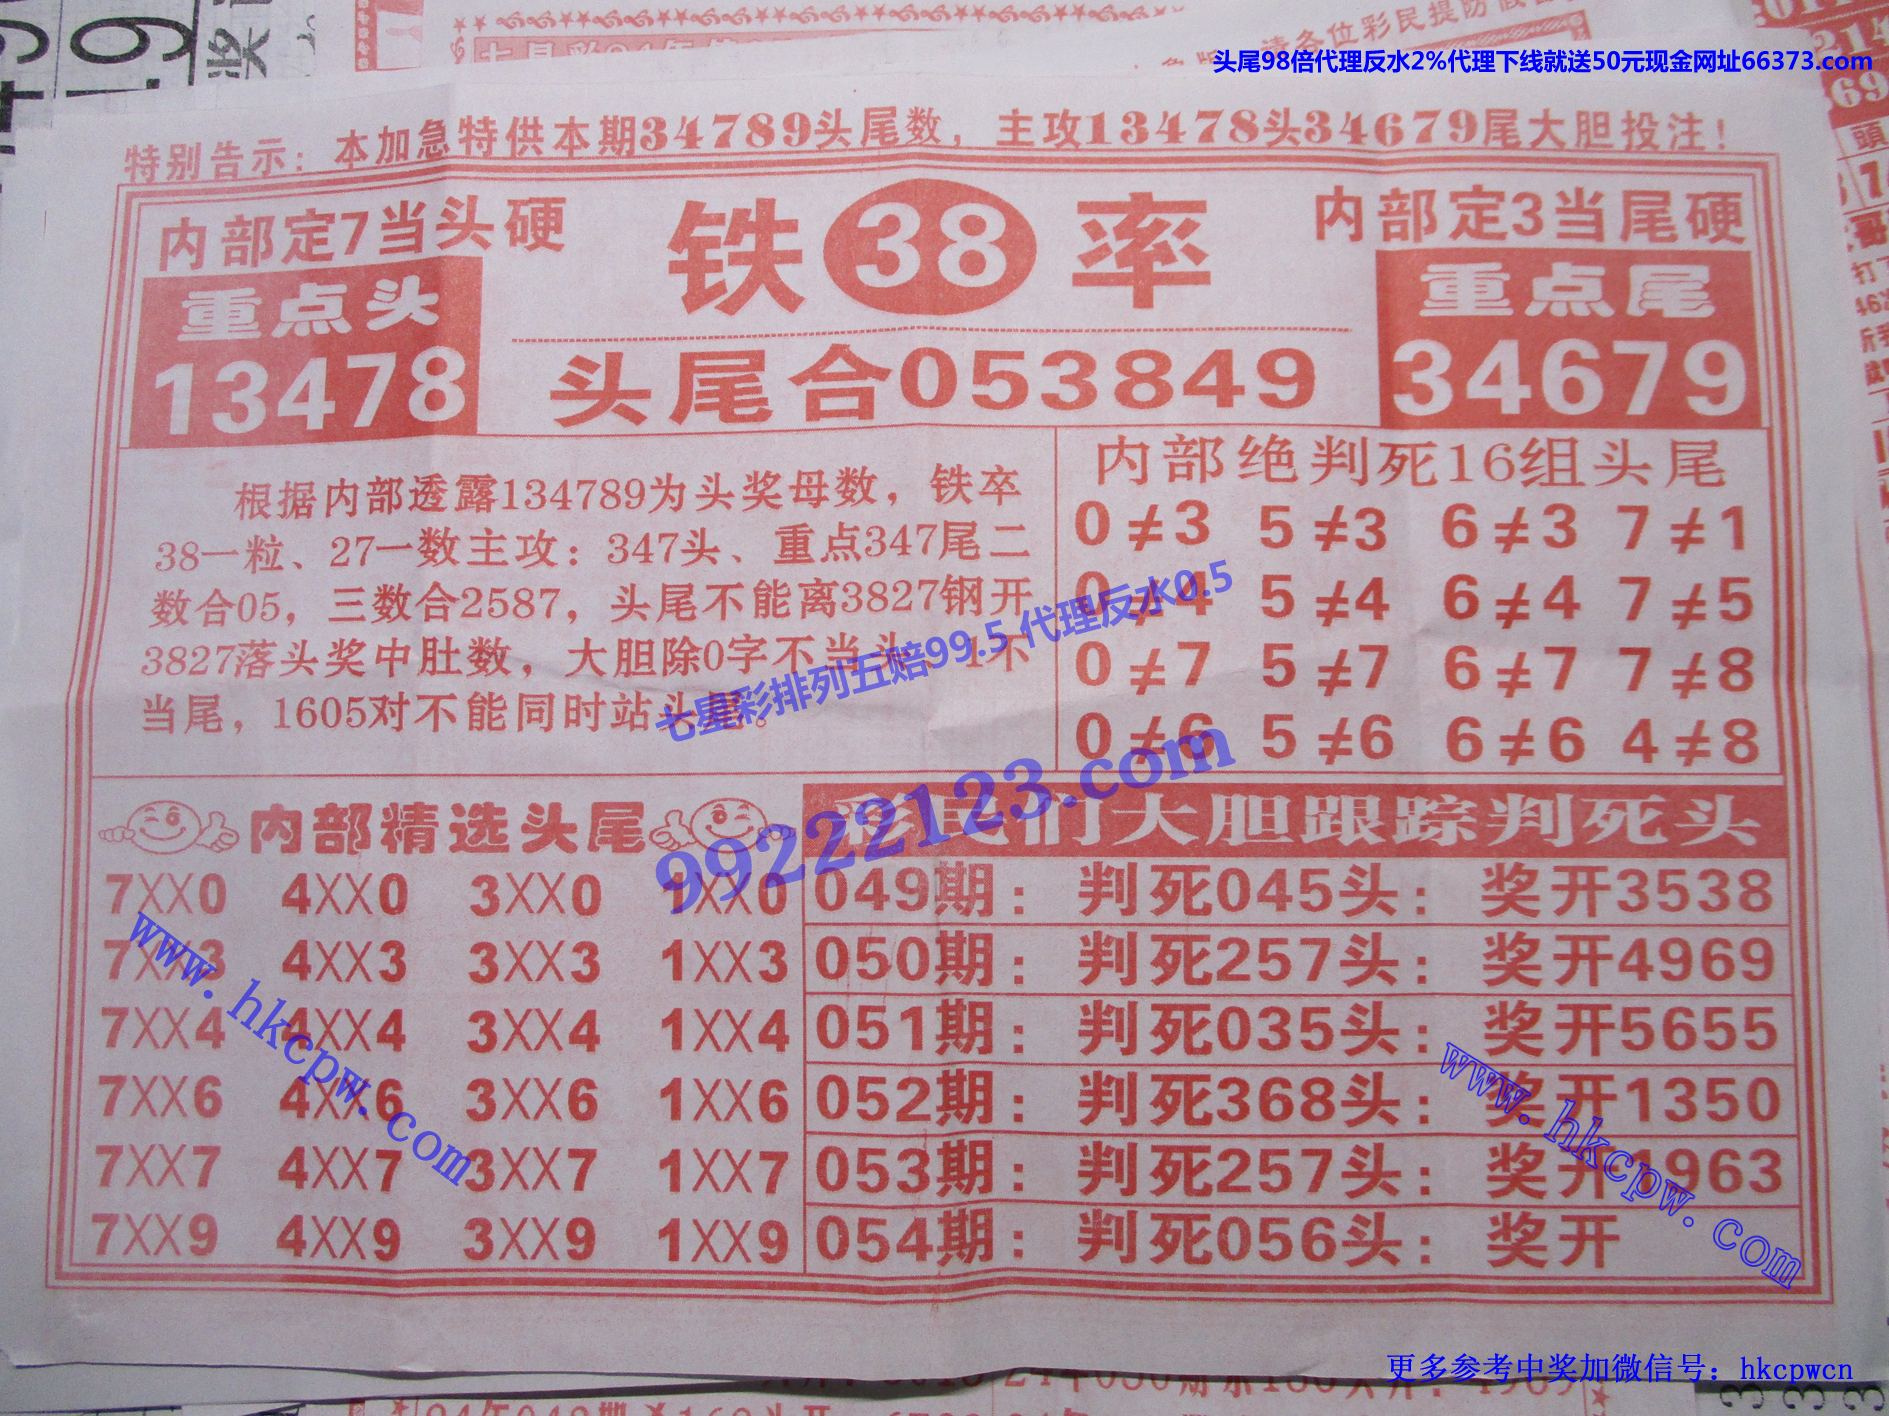 头尾98倍代理反水2%代理下线就送50元现金网址66373.com
特别告示：本加急特供本期34789头尾数，主攻13478头34679尾大胆投注！
内部定7当头硬
重点头
13478
铁38率
头尾合053849
内部定3当尾硬
重点尾
34679
根据内部透露134789为头奖母数，铁卒
38一粒、27一数主攻：347头、重点347尾二
数合05，三数合2587，头尾不能离3827钢开
3827落头奖中肚数，大胆除0字不当头，1不
当尾，1605对不能同时站头尾。
内部绝判死16组头尾
0≠3 5≠3 6≠3 7≠1
0≠4 5≠4 6≠4 7≠5
0≠7 5≠7 6≠7 7≠8
0≠6 5≠6 6≠6 4≠8
七星彩排列五赔99.5 代理反水0.5
99222123.com
内部精选头尾
7XX0 4XX0 3XX0 1XX0
7XX3 4XX3 3XX3 1XX3
7XX4 4XX4 3XX4 1XX4
7XX6 4XX6 3XX6 1XX6
7XX7 4XX7 3XX7 1XX7
7XX9 4XX9 3XX9 1XX9
彩民们大胆跟踪判死头
049期：判死045头：奖开3538
050期：判死257头：奖开4969
051期：判死035头：奖开5655
052期：判死368头：奖开1350
053期：判死257头：奖开1963
054期：判死056头：奖开
www.hkcpw.com
www.hkcpw.com
更多参考中奖加微信号：hkcpwcn